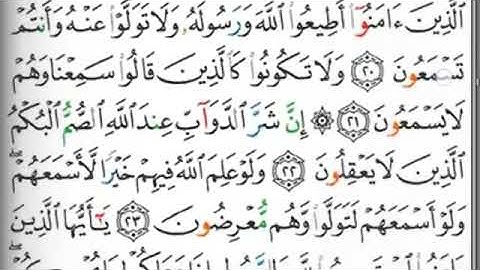 ٱلَّذِينَ ءَامَنُوٓا۟ أَطِيعُوا۟ ٱللَّهَ وَرَسُولَهُۥ وَلَا تَوَلَّوْا۟ عَنْهُ وَأَنتُمْ
تَسْمَعُونَ ٢٠ وَلَا تَكُونُوا۟ كَٱلَّذِينَ قَالُوا۟ سَمِعْنَا وَهُمْ
لَا يَسْمَعُونَ ٢١ ۞ إِنَّ شَرَّ ٱلدَّوَآبِّ عِندَ ٱللَّهِ ٱلصُّمُّ ٱلْبُكْمُ
ٱلَّذِينَ لَا يَعْقِلُونَ ٢٢ وَلَوْ عَلِمَ ٱللَّهُ فِيهِمْ خَيْرًا لَّأَسْمَعَهُمْ ۖ
وَلَوْ أَسْمَعَهُمْ لَتَوَلَّوا۟ وَّهُم مُّعْرِضُونَ ٢٣ يَـٰٓأَيُّهَا ٱلَّذِينَ